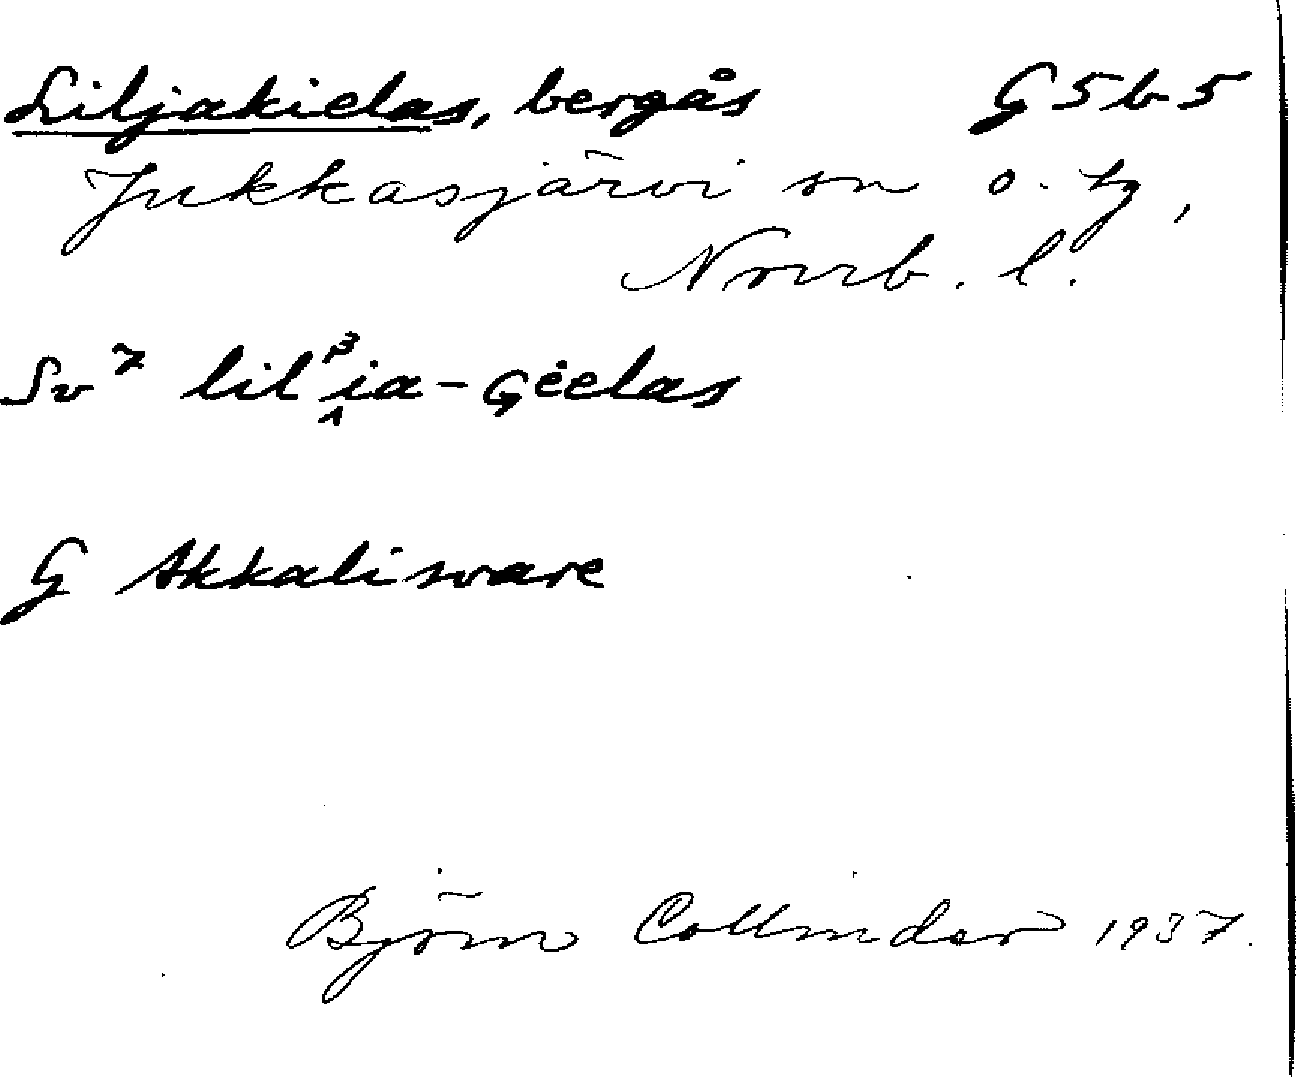 Liljakielas, bergås G 5 b 5
Jukkasjärvi sn o. tg,
Norrb. l.
Sv 7 lilᵝia-Gėelas
G Akkalisvare
Björn Collinder 1937.